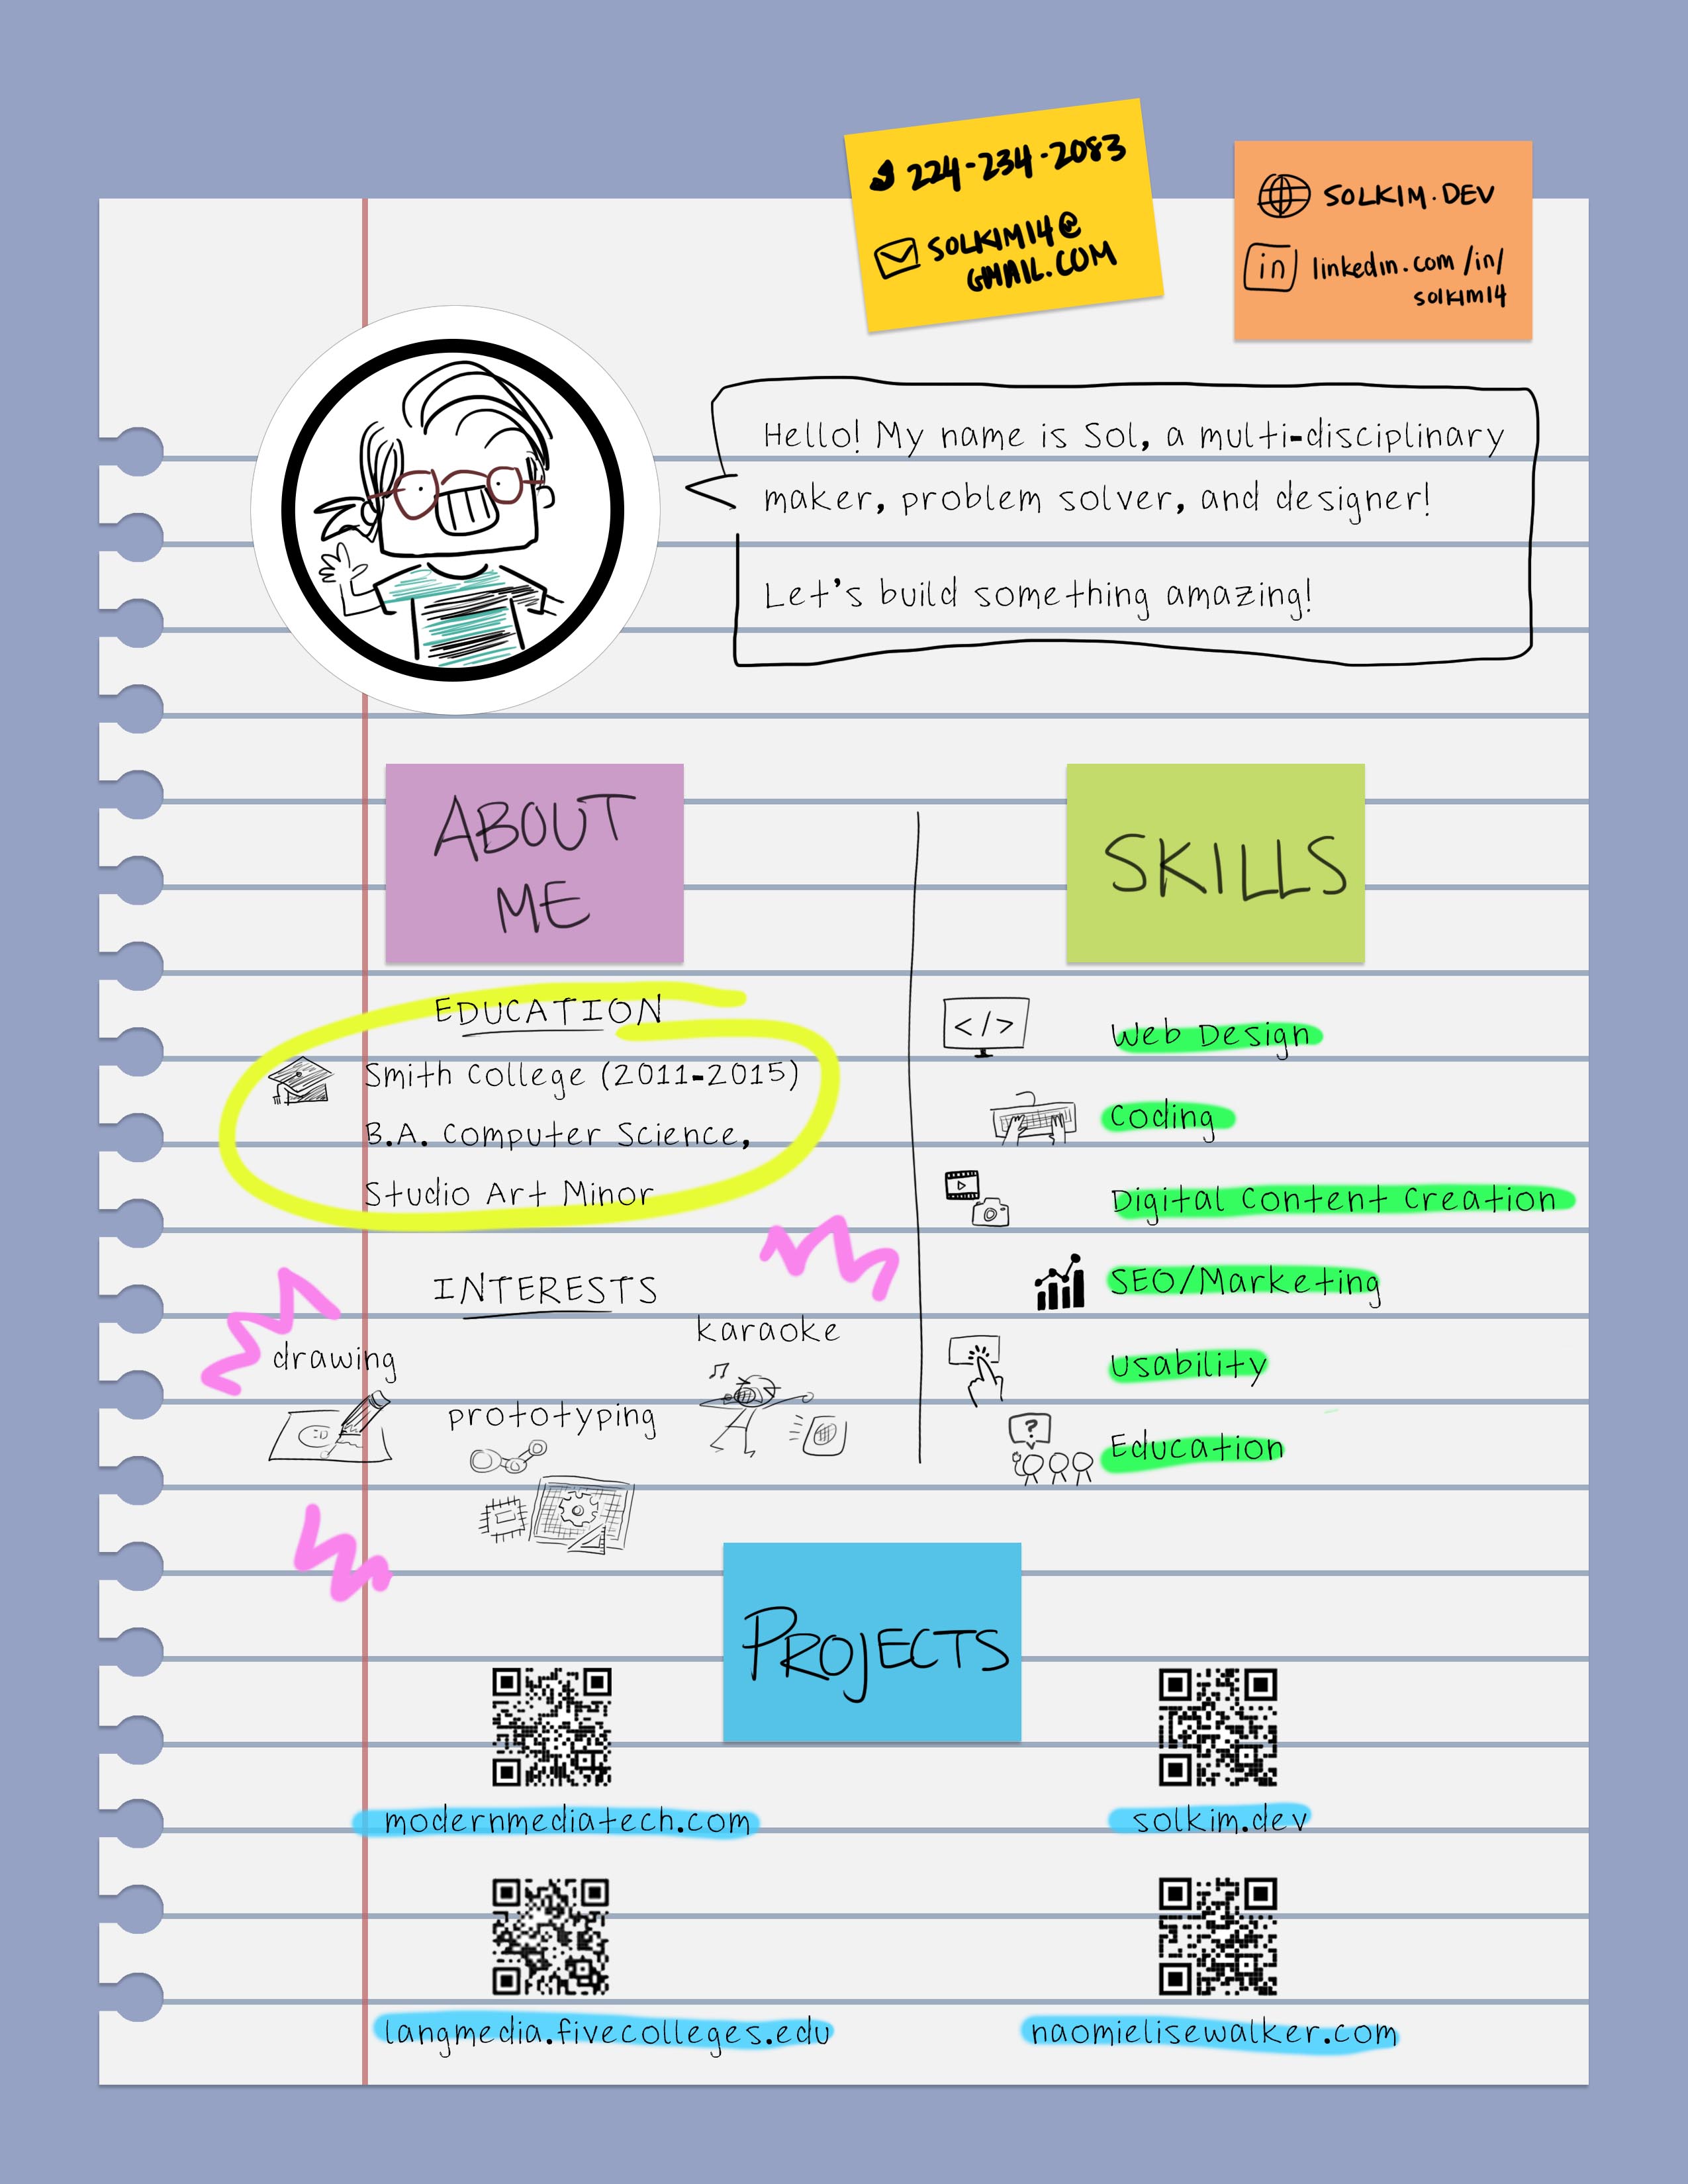 224-234-2083
SOLKIM14@
GMAIL.COM
SOLKIM.DEV
in linkedin.com/in/
solkim14
Hello! My name is Sol, a multi-disciplinary
maker, problem solver, and designer!
Let's build something amazing!
ABOUT
ME
EDUCATION
Smith College (2011-2015)
B.A. Computer Science,
Studio Art Minor
INTERESTS
drawing
prototyping
karaoke
SKILLS
</>
Web Design
Coding
Digital Content Creation
SEO/Marketing
Usability
?
Education
PROJECTS
modernmediatech.com
solkim.dev
langmedia.fivecolleges.edu
naomielisewalker.com